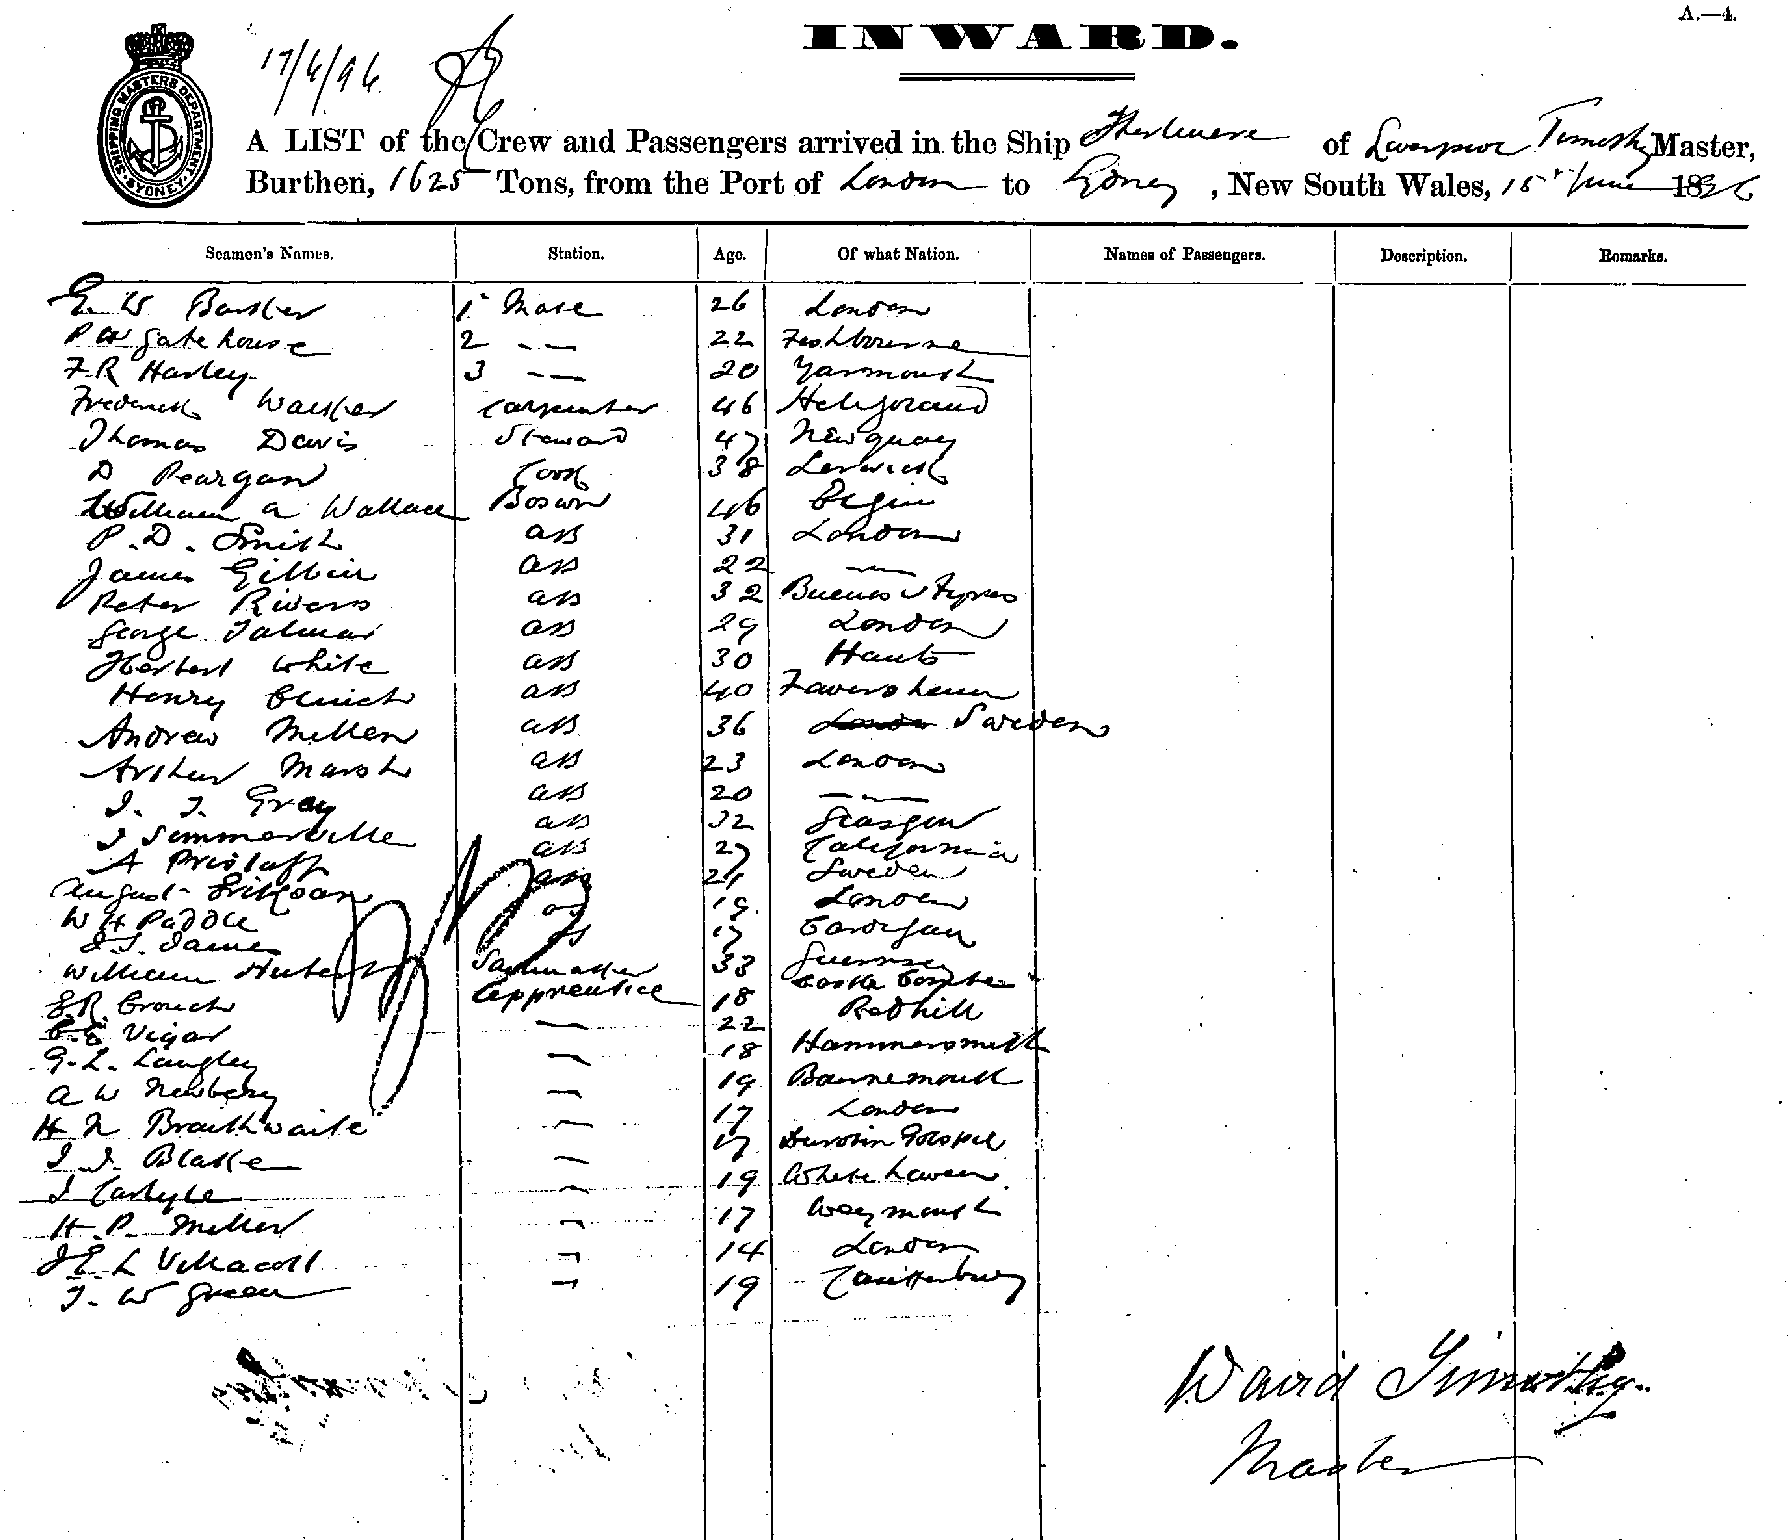 A.—4.
INWARD.
17/6/96
SHIPPING MASTERS DEPARTMENT SYDNEY
A LIST of the Crew and Passengers arrived in the Ship of Liverpool Timothy Master,
Burthen, 1625 Tons, from the Port of London to Sydney, New South Wales, 15th June 1896
Seamen's Names. Station. Age. Of what Nation. Names of Passengers. Description. Remarks.
E. W Barker 1st Mate 26 London
P W Gatehouse 2 — — 22 Fishbourne
F. R Harley 3 — — 20 Yarmouth
Frederick Walker Carpenter 46 Heligoland
Thomas Davis Steward 47 Newquay
D Peargan Cook 38 Lerwick
William A Wallace Boswn 46 Elgin
P. D. Smith AB 31 London
James AB 22 — —
Peter Rivers AB 32 Buenos Ayres
George AB 29 London
Herbert White AB 30 Hants
Henry AB 40 Faversham
Andrew Millen AB 36 London Sweden
Arthur Marsh AB 23 London
J. J. Gray AB 20 — —
J Sommerville AB 32 Glasgow
A AB 27 California
August AB Sweden
W H Paddle 19 London
J. S. James OS 17 Cardigan
William Sailmaker 33 Guernsey
R. Crouch Apprentice 18 Castle
C. E Vigar — 22 Redhill
G. L. Langley — 18 Hammersmith
A W Newbery — 19 Bournemouth
H N Braithwaite — 17 London
J. J. Blake — 17
J Carlyle — 19 Whitehaven
H. P. Miller — 17 Weymouth
J E L Villacott — 14 London
J. W Green — 19 Canterbury
David Timothy
Master